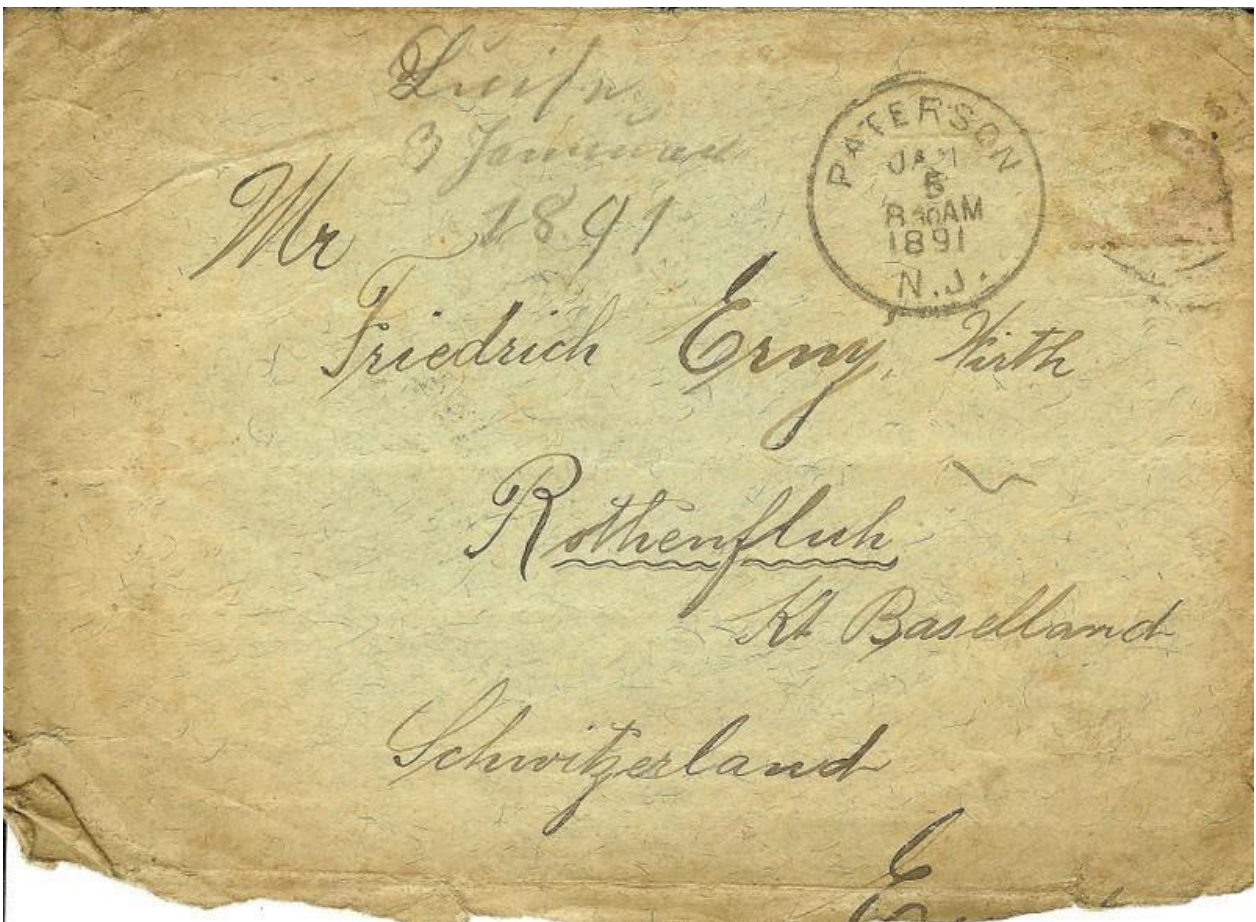 Luise
3 Januar
1891
PATERSON
JAN
5
8 30 AM
1891
N.J.
Mr
Friedrich Erny, Wirth
Rothenfluh
Kt Baselland
Schwitzerland